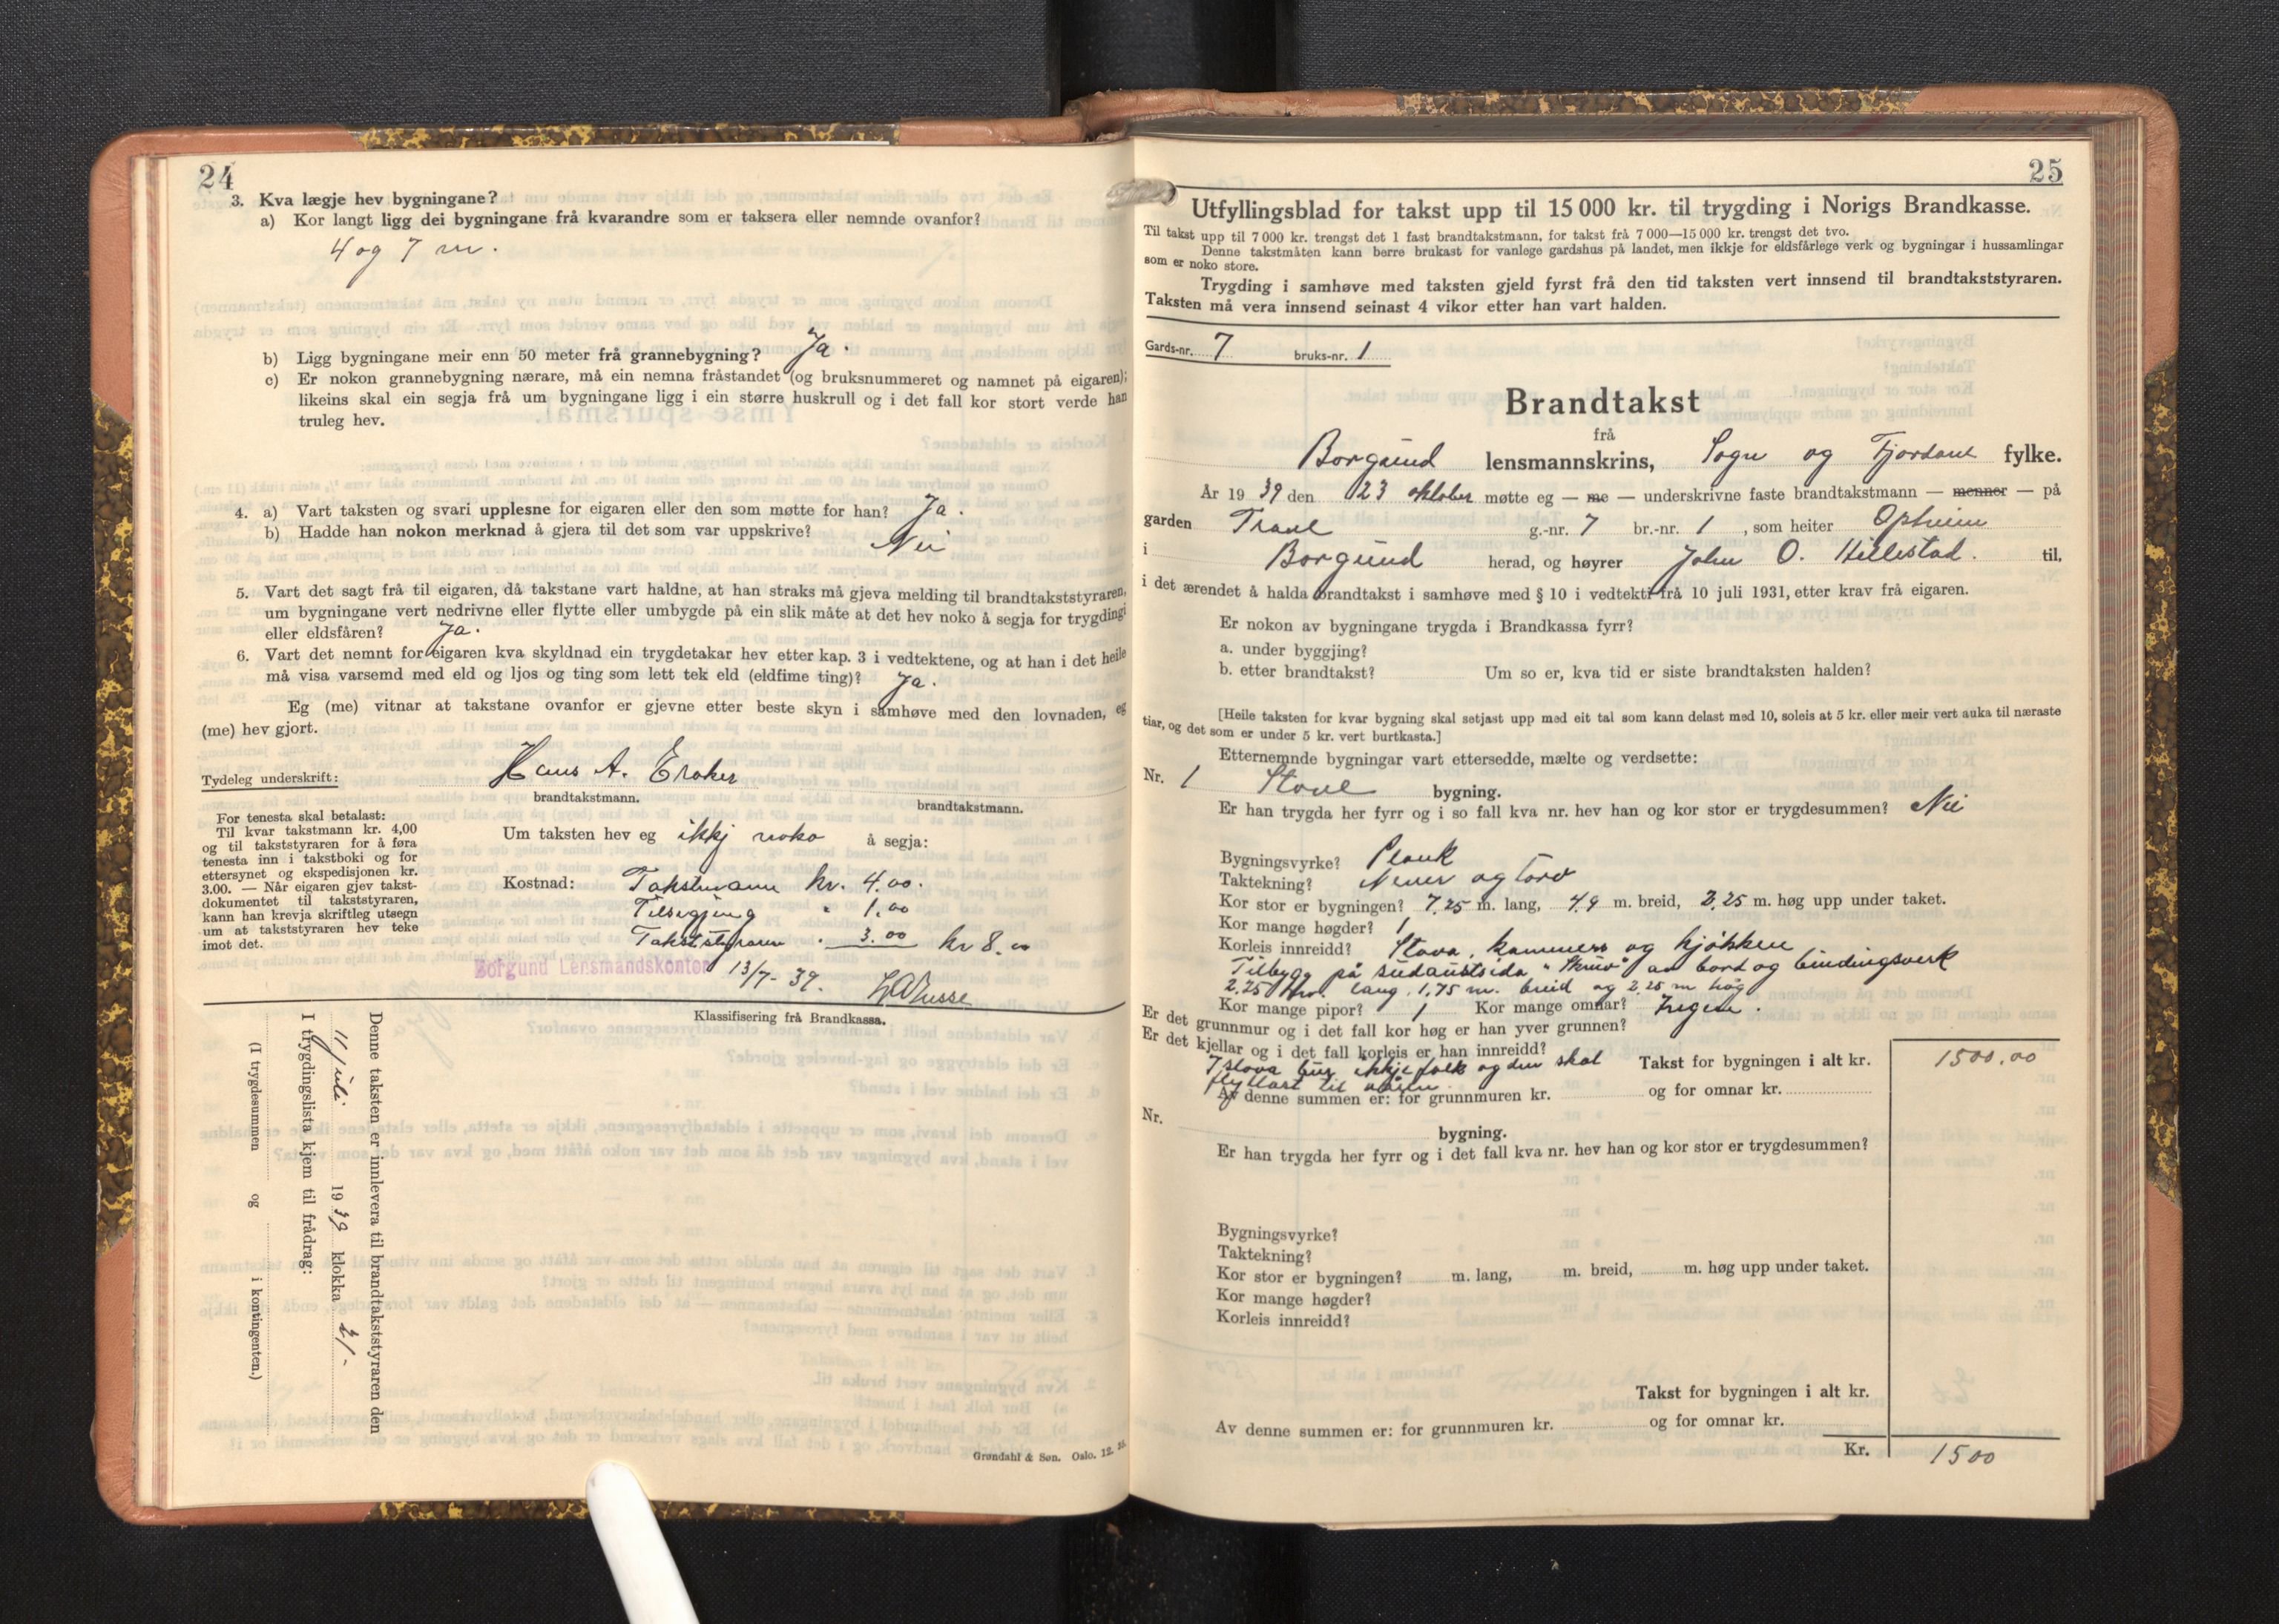 24
3. Kva lægje hev bygningane?
a) Kor langt ligg dei bygningane frå kvarandre som er taksera eller nemnde ovanfor?
4 og 7 m.
b) Ligg bygningane meir enn 50 meter frå grannebygning? Ja.
c) Er nokon grannebygning nærare, må ein nemna fråstandet (og bruksnummeret og namnet på eigaren);
likeins skal ein segja frå um bygningane ligg i ein større huskrull og i det fall kor stort verde han
truleg hev.
4. a) Vart taksten og svari upplesne for eigaren eller den som møtte for han? Ja.
b) Hadde han nokon merknad å gjera til det som var uppskrive? Nei
5. Vart det sagt frå til eigaren, då takstane vart haldne, at han straks må gjeva melding til brandtakststyraren,
um bygningane vert nedrivne eller flytte eller umbygde på ein slik måte at det hev noko å segja for trygdingi
eller eldsfåren? Ja.
6. Vart det nemnt for eigaren kva skyldnad ein trygdetakar hev etter kap. 3 i vedtektene, og at han i det heile
må visa varsemd med eld og ljos og ting som lett tek eld (eldfime ting)? Ja.
Eg (me) vitnar at takstane ovanfor er gjevne etter beste skyn i samhøve med den lovnaden, eg
(me) hev gjort.
Tydeleg underskrift: Hans A. Eraker
brandtakstmann. brandtakstmann.
For tenesta skal betalast:
Til kvar takstmann kr. 4,00
og til takststyraren for å føra
tenesta inn i takstboki og for
ettersynet og ekspedisjonen kr.
3.00. — Når eigaren gjev takst-
dokumentet til takststyraren,
kann han krevja skriftleg utsegn
um at takststyraren hev teke
imot det.
Um taksten hev eg ikkj noko å segja:
Kostnad: Takstmann kr. 4.00.
Tilsegjing " 1.00
Takststyraren " 3.00 kr 8.00
Borgund Lensmandskontor 13/7-39.
Klassifisering frå Brandkassa.
Denne taksten er innlevera til brandtakststyraren den
11 juli 1939 klokka 21-
I trygdingslista kjem til frådrag:
(I trygdesummen og i kontingenten.)
Grøndahl & Søn. Oslo. 12.
25
Utfyllingsblad for takst upp til 15 000 kr. til trygding i Norigs Brandkasse.
Til takst upp til 7 000 kr. trengst det 1 fast brandtakstmann, for takst frå 7 000—15 000 kr. trengst det tvo.
Denne takstmåten kann berre brukast for vanlege gardshus på landet, men ikkje for eldsfårlege verk og bygningar i hussamlingar
som er noko store.
Trygding i samhøve med taksten gjeld fyrst frå den tid taksten vert innsend til brandtakststyraren.
Taksten må vera innsend seinast 4 vikor etter han vart halden.
Gards-nr. 7 bruks-nr. 1
Brandtakst
frå
Borgund lensmannskrins, Sogn og Fjordane fylke.
År 1939 den 23 oktober møtte eg — me — underskrivne faste brandtakstmann — menner — på
garden g.-nr. 7 br.-nr. 1, som heiter Opheim
i Borgund herad, og høyrer John O. Hillestad. til,
i det ærendet å halda brandtakst i samhøve med § 10 i vedtekti frå 10 juli 1931, etter krav frå eigaren.
Er nokon av bygningane trygda i Brandkassa fyrr?
a. under byggjing?
b. etter brandtakst? Um so er, kva tid er siste brandtaksten halden?
[Heile taksten for kvar bygning skal setjast upp med eit tal som kann delast med 10, soleis at 5 kr. eller meir vert auka til næraste
tiar, og det som er under 5 kr. vert burtkasta.]
Etternemnde bygningar vart ettersedde, mælte og verdsette:
Nr. 1 Stove bygning.
Er han trygda her fyrr og i so fall kva nr. hev han og kor stor er trygdesummen? Nei
Bygningsvyrke? Plank
Taktekning? Never og torv
Kor stor er bygningen? 7,25 m. lang, 4,9 m. breid, 3,25 m. høg upp under taket.
Kor mange høgder? 1
Korleis innreidd? Stova, kammers og kjøkken
Tilbygg på sudaustsida "Skruv" av bord og bindingsverk
2,25 m. lang, 1,75 m. breid og 2,25 m høg
Kor mange pipor? 1 Kor mange omnar? Ingen.
Er det grunnmur og i det fall kor høg er han yver grunnen?
Er det kjellar og i det fall korleis er han innreidd?
I stova bur ikkje folk og den skal
flyttast til våren. Takst for bygningen i alt kr. 1500.00
Av denne summen er: for grunnmuren kr. og for omnar kr.
Nr. bygning.
Er han trygda her fyrr og i det fall kva nr. hev han og kor stor er trygdesummen?
Bygningsvyrke?
Taktekning?
Kor stor er bygningen? m. lang, m. breid, m. høg upp under taket.
Kor mange høgder?
Korleis innreidd?
Takst for bygningen i alt kr.
Av denne summen er: for grunnmuren kr. og for omnar kr.
Kr. 1500